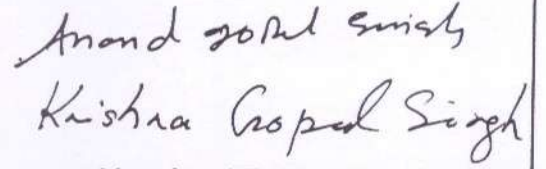 Anand Gopal Singh
Krishna Gopal Singh